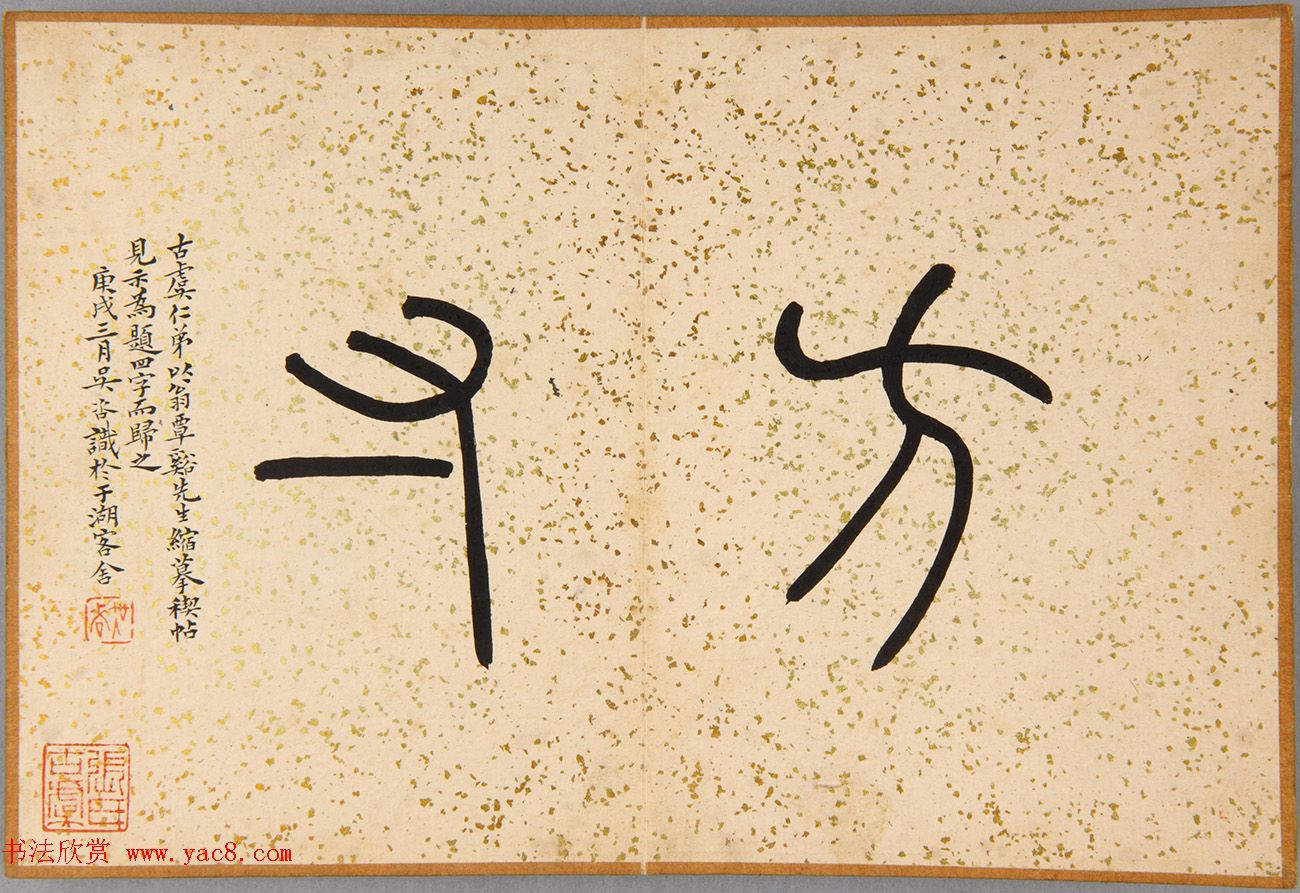 方寸
古虞仁弟以翁覃谿先生縮摹禊帖
見示為題四字而歸之
庚戌三月吳咨識於于湖客舍
張氏古虞
书法欣赏 www.yac8.com